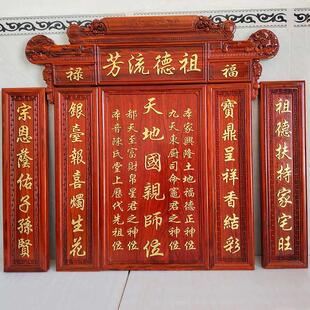 福
祖德流芳
禄
祖德扶持家宅旺
寶鼎呈祥香結彩
本家興隆土地福德正神位
九天東厨司命竈君之神位
天地國親師位
都天至富財帛星君之神位
本音陳氏堂上歷代先祖位
銀臺報喜燭生花
宗恩隆佑子孫賢